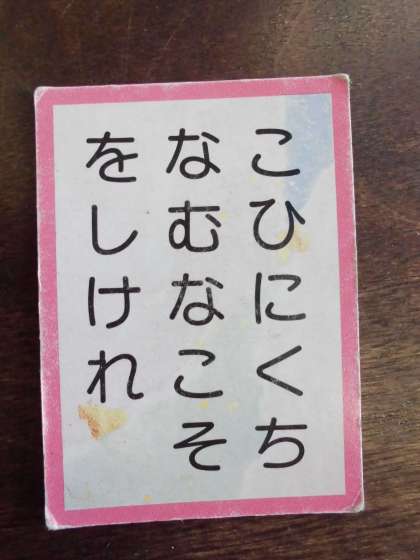 こひにくち
なむなこそ
をしけれ